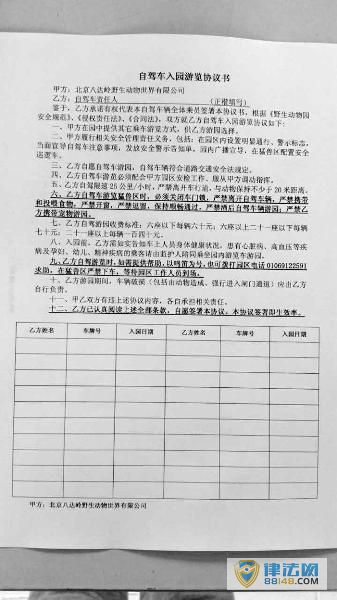 自驾车入园游览协议书
甲方：北京八达岭野生动物世界有限公司
乙方：自驾车责任人 （正楷填写）
签于，乙方承诺有权代表本自驾车辆全体乘员签署本协议书，根据《野生动物园
安全规范》、《侵权责任法》、《合同法》，双方就乙方自驾车入园游览协议如下：
一、甲方在园中提供其它乘车游览方式，供乙方游园选择。
二、甲方履行相关管理责任义务，包括：在园区内设置明显通行、警示标志，
当面宣导自驾车注意事项，发放安全警示告知单，园内广播宣导，在猛兽区配置安全
巡逻车。
三、乙方自愿自驾车游园，自驾车辆符合道路交通安全法规定。
四、乙方自驾车游览必须配合甲方园区安检工作，服从甲方调动指挥。
五、乙方自驾限速 25 公里/小时，严禁离开车行道，与动物保持不少于 20 米距离。
六、乙方自驾车游览猛兽区时，必须关闭车门锁，严禁离开自驾车辆，严禁携带
和投喂食物，严禁开窗，严禁逗留，保持顺畅通过，严禁酒后自驾车辆游园；严禁乙
方携带宠物游园。
七、乙方自驾游园收费标准：六座以下每辆六十元，六座以上二十一座以下每辆
七十元；二十一座以上每辆一百四十元。
八、入园前，乙方需如实告知车上人员身体健康状况，患有心脏病、高血压等疾
病及孕妇、幼儿、精神疾病的乘客请由监护人陪同乘坐园内游览车游园。
九、乙方自驾游览时，如需提供帮助，以鸣笛为号，也可拨打园区电话 01069122591
求助，在猛兽区严禁下车，等待园区工作人员到场。
十、乙方游园期间，车辆破损（包括由动物造成、强行进入闸门通道）应由乙方
自行负责。
十一、甲乙双方有违上述协议内容，各自承担相关责任。
十二、乙方已认真阅读上述全部条款，自愿签署本协议，本协议签署即生效率。
乙方姓名 车牌号 入园日期 乙方姓名 车牌号 入园日期
甲方：北京八达岭野生动物世界有限公司
律法网
88148.COM